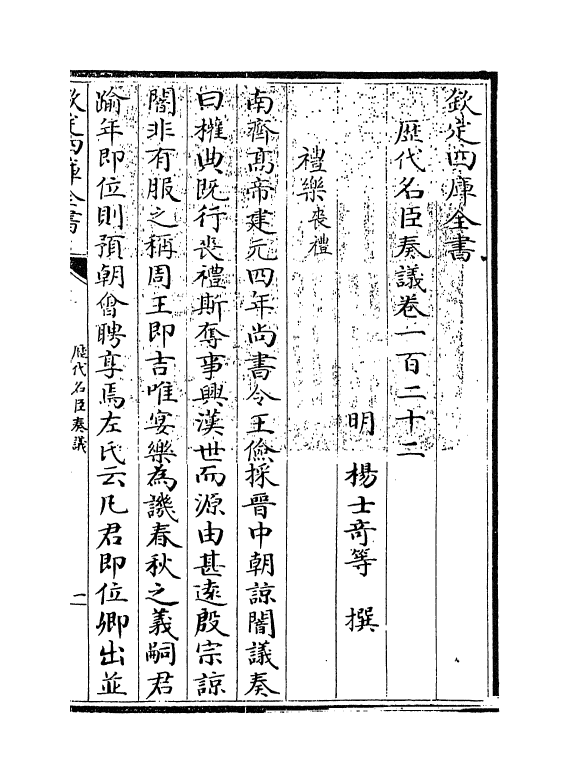 欽定四庫全書
歴代名臣奏議卷一百二十二
明 楊士竒等 撰
禮樂喪禮
南齊髙帝建元四年尚書令王儉採晉中朝諒闇議奏
曰權典既行喪禮斯奪事興漢世而源由甚逺殷宗諒
闇非有服之稱周王即吉唯宴樂為譏春秋之義嗣君
踰年即位則預朝㑹聘享焉左氏云凡君即位卿出並
欽定四庫全書
歴代名臣奏議